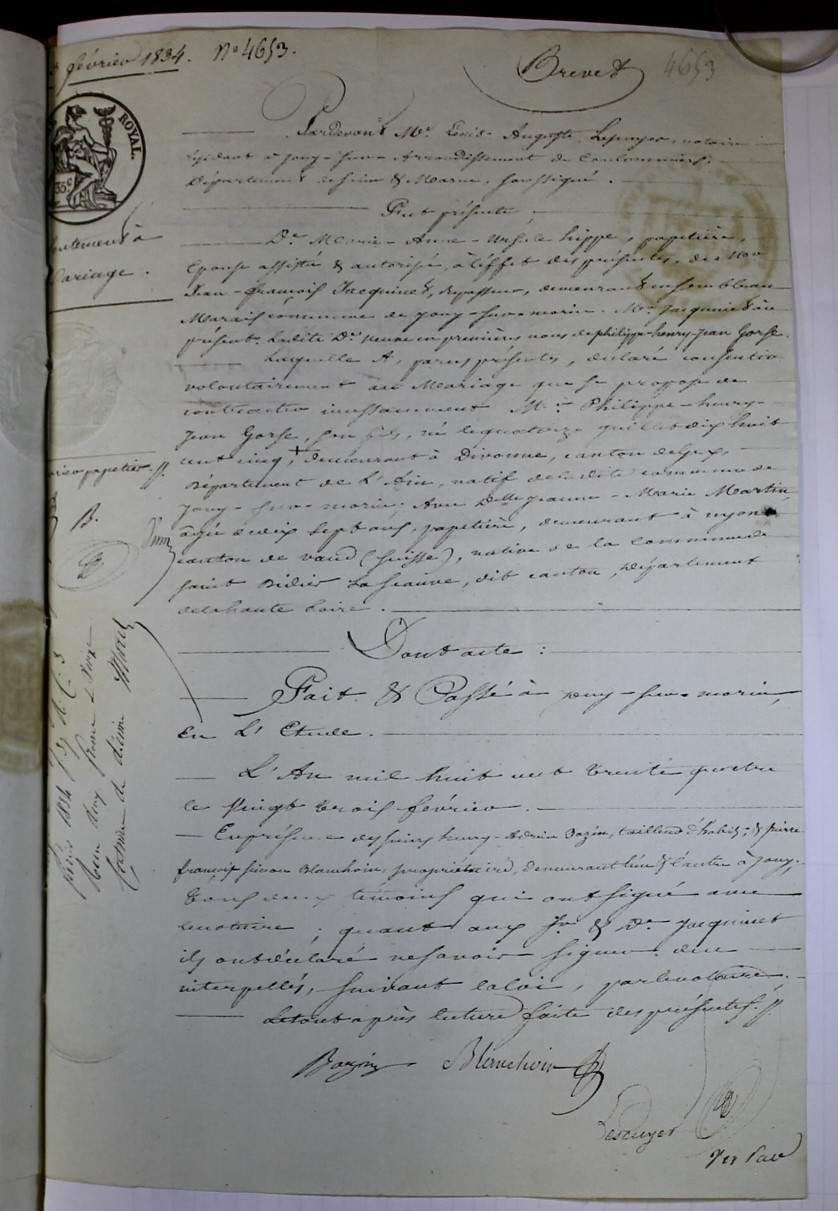 février 1834. N° 4653.
Brevet 4653
ROYAL.
35c
Consentement à
Mariage.
Pardevant Me Louis-Auguste Lescuyer, notaire
résidant à Jouy-sur- Arrondissement de Coulommiers,
Département de Seine & Marne, soussigné.
Fut présente;
De Marie-Anne-Ursule hippe, papetière,
Epouse assistée & autorisée, à l'effet des présentes, de Mr
Jean-françois Jacquinet, demeurant ensemble au
Marais commune de Jouy-sur-morin. Mr Jacquinet à ce
présent. Ladite De veuve en premières noces de philippe-henry-Jean Gorse.
Laquelle A, par ces présentes, déclaré consentir
volontairement au Mariage que se propose de
contracter incessamment Mr Philippe-henry-
Jean Gorse, son fils, né le quatorze juillet dix huit
cent cinq, + demeurant à Divonne, canton de Gex,
Département de L'Ain, natif de ladite commune de
Jouy-sur-morin; Avec Delle Jeanne-Marie Martin
âgée de dix sept ans, papetière, demeurant à nyon
canton de vaud (Suisse), native de la Commune de
saint Didier La Seauve, dit canton, Département
de la haute Loire.
papetier.
B.
Dont acte:
Fait & Passé à jouy-sur-morin,
En L'Etude.
L'An mil huit cent trente quatre
le Vingt trois février.
En présence des sieurs henry-Adrien Bozin, tailleur d'habits, & pierre
françois simon Blanchoin, propriétaire, demeurant l'un & l'autre à Jouy,
tous deux témoins qui ont signé avec
le notaire; quant aux Sr & De Jacquinet
ils ont déclaré ne savoir signer, de ce
interpellés, suivant la loi, par le notaire.
Le tout après lecture faite des présentes.
Blanchoin
Lescuyer
1834
deux francs